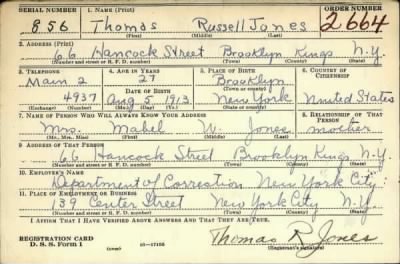 SERIAL NUMBER 1. NAME (Print) ORDER NUMBER
856 Thomas Russell Jones 2664
(First) (Middle) (Last)
2. ADDRESS (Print)
66 Hancock Street Brooklyn Kings N.Y.
(Number and street or R. F. D. number) (Town) (County) (State)
3. TELEPHONE 4. AGE IN YEARS 5. PLACE OF BIRTH 6. COUNTRY OF CITIZENSHIP
Main 2 27 Brooklyn
DATE OF BIRTH (Town or county)
4937 Aug 5 1913 New York United States
(Exchange) (Number) (Mo.) (Day) (Yr.) (State or country)
7. NAME OF PERSON WHO WILL ALWAYS KNOW YOUR ADDRESS 8. RELATIONSHIP OF THAT PERSON
Mrs. Mabel W. Jones mother
(Mr., Mrs., Miss) (First) (Middle) (Last)
9. ADDRESS OF THAT PERSON
66 Hancock Street Brooklyn Kings N.Y.
(Number and street or R. F. D. number) (Town) (County) (State)
10. EMPLOYER'S NAME
Department of Correction New York City
11. PLACE OF EMPLOYMENT OR BUSINESS
139 Center Street New York City N.Y.
(Number and street or R. F. D. number) (Town) (County) (State)
I AFFIRM THAT I HAVE VERIFIED ABOVE ANSWERS AND THAT THEY ARE TRUE.
REGISTRATION CARD
D. S. S. Form 1 (over) 16-17105 Thomas R Jones
(Registrant's signature)